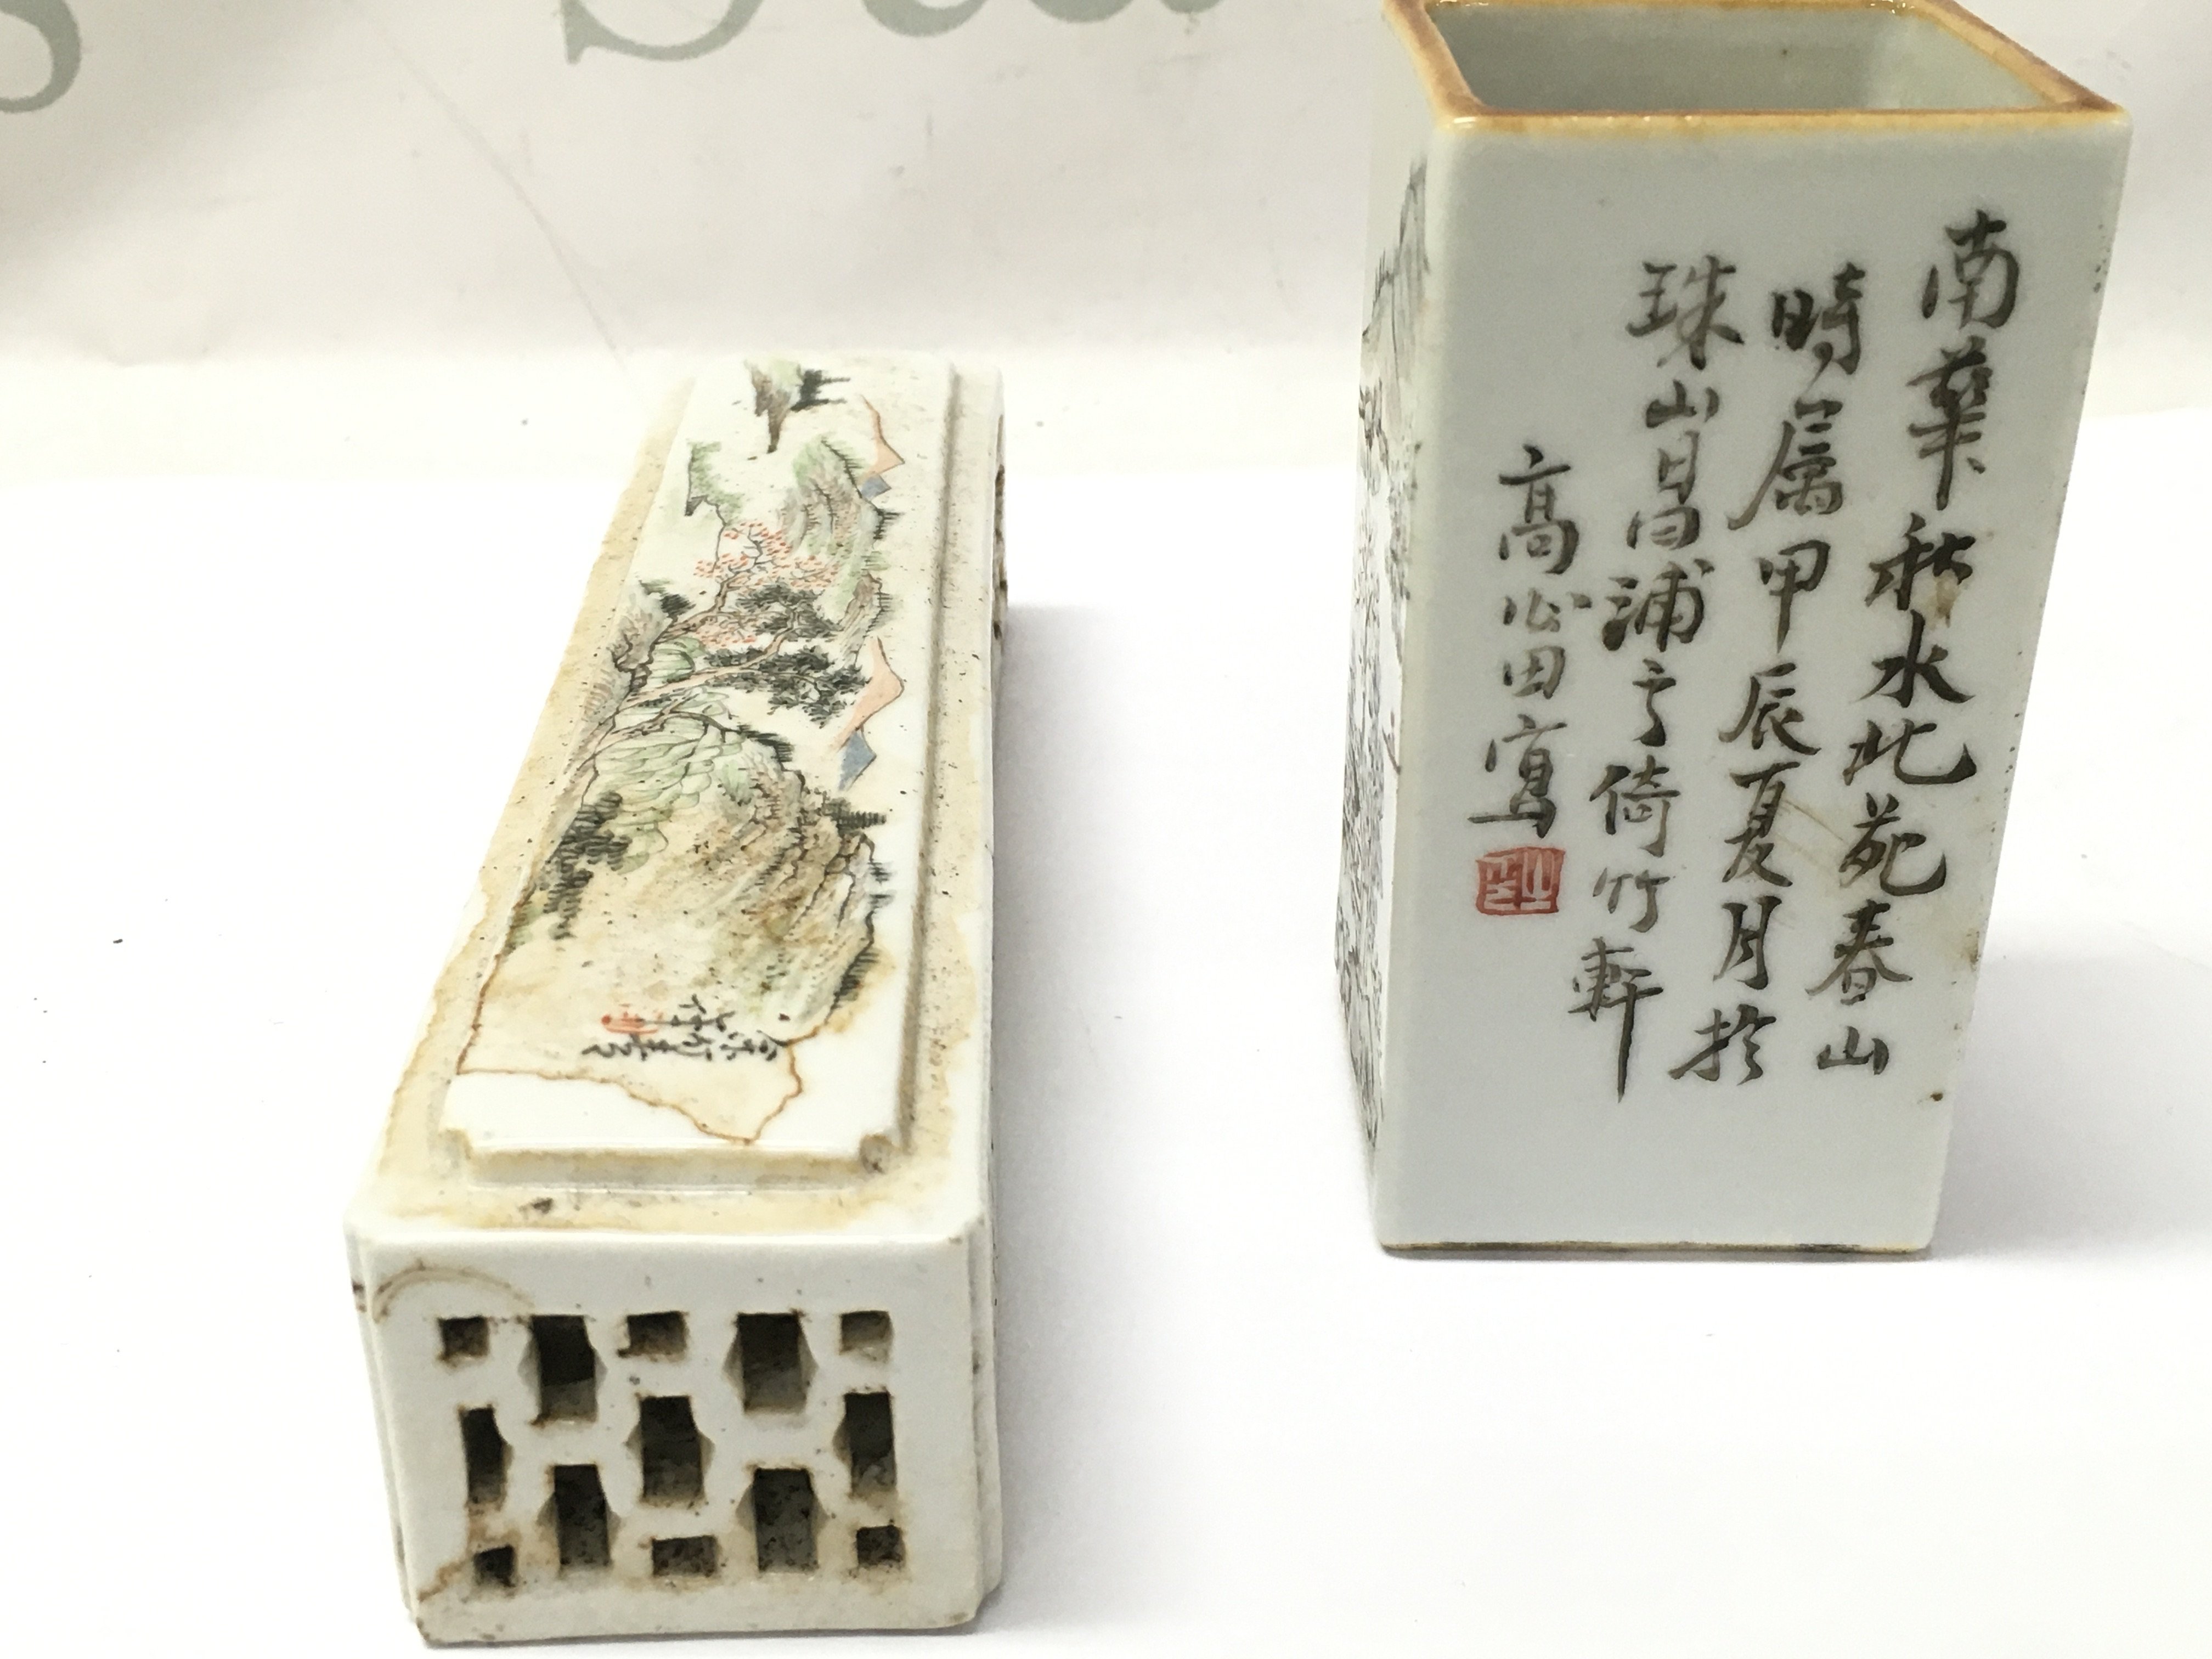 南華秋水北苑春山
時属甲辰夏月於
珠山昌浦之倚竹軒
高心田寫